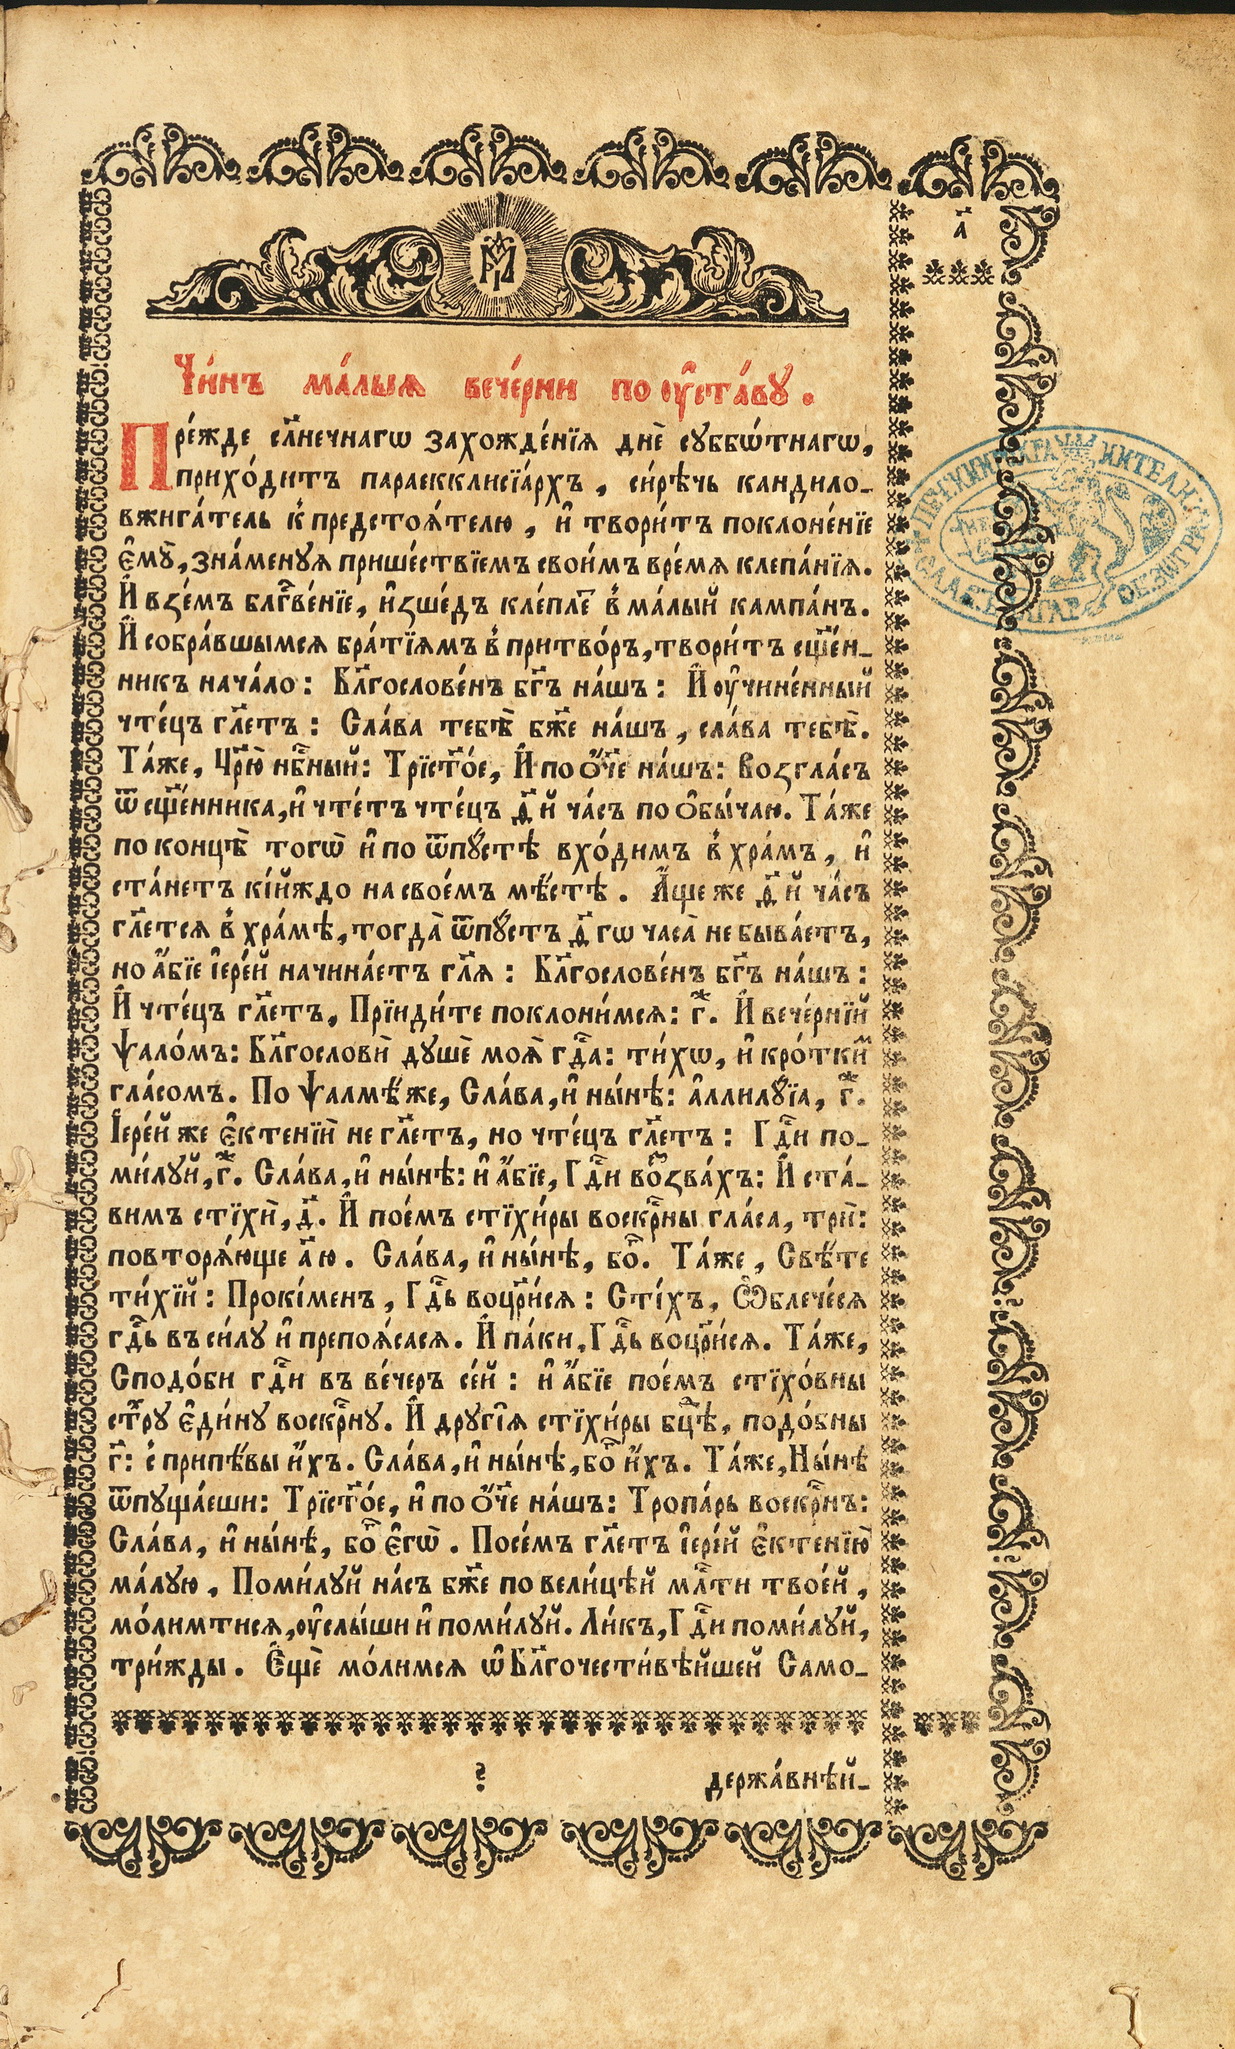 а҃
Чи́нъ ма́лыѧ вече́рни по ᲂу҆ста́ву .
Пре́жде сл҃нечнагѡ захожде́нїѧ днѐ суббѡ́тнагѡ,
прихо́дитъ параекклисїа́рхъ , си́рѣчь кандило-
вжига́тель к̾ предстоѧ́телю , и҆ твори́тъ поклоне́нїе
є҆мꙋ̀, зна́менуѧ прише́ствїемъ свои́мъ вре́мѧ клепа́нїѧ.
И҆ взе́мъ блгⷭ҇ве́нїе, и҆зше́дъ кле́плетⷭ в̾ ма́лый кампа́нъ.
И҆ собра́вшымсѧ бра́тїѧмъ в̾ притво́ръ, твори́тъ сщ҃е́н-
никъ нача́ло : Бл҃гослове́нъ бг҃ъ на́шъ : И҆ ᲂу҆чине́нный
чте́цъ гл҃етъ : Сла́ва тебѣ̀ бж҃е на́шъ , сла́ва тебѣ̀.
Та́же, Цр҃ю̀ нбⷭ҇ный: Трїст҃о́е, И҆ по ѻ҆́ч҃е на́шъ: Возгла́съ
ѿ сщ҃е́нника, и҆ чте́тъ чте́цъ д҃ й ча́съ по ѻ҆бы́чаю. Та́же
по концѣ̀ тогѡ̀ и҆ по ѿпу́стѣ вхо́димъ в̾ хра́мъ , и҆
ста́нетъ кі́йждо на свое́мъ мѣ́стѣ . А҆́ще же д҃ й ча́съ
гл҃етсѧ в̾ хра́мѣ, тогда̀ ѿпу́стъ д҃ гѡ часа̀ не быва́етъ,
но а҆́бїе і҆ере́й начина́етъ гл҃ѧ : Бл҃гослове́нъ бг҃ъ на́шъ :
И҆ чте́цъ гл҃етъ, Прїиди́те поклони́мсѧ: г҃. И҆ вече́рнїй
ѱало́мъ: Бл҃гословѝ душѐ моѧ̀ гдⷭ҇а: ти́хѡ, и҆ кро́ткиⷨ
гла́сомъ. По ѱалмѣ́ же, Сла́ва, и҆ ны́нѣ: а҆ллилу́їа, г҃.
І҆ере́й же є҆ктенїй не гл҃етъ, но чте́цъ гл҃етъ : Гдⷭ҇и по-
ми́луй, г҃. Сла́ва, и҆ ны́нѣ: и҆ а҆́бїе, Гдⷭ҇и воззва́хъ: И҆ ста́-
вимъ стїхѝ, д҃. И҆ пое́мъ стїхи́ры воскрⷭ҇ны гла́са, трѝ:
повторѧ́юще а҃ ю . Сла́ва, и҆ ны́нѣ, боⷢ҇. Та́же , Свѣ́те
ти́хїй : Прокі́менъ , Гдⷭ҇ь воцр҃и́сѧ : Сті́хъ, Ѡ҆блече́сѧ
гдⷭ҇ь въ си́лу и҆ препоѧ́сасѧ. И҆ па́ки, Гдⷭ҇ь воцр҃и́сѧ. Та́же,
Сподо́би гдⷭ҇и въ ве́черъ се́й : и҆ а҆́бїе пое́мъ стїхо́вны
стⷯру є҆ди́ну воскрⷭ҇ну. И҆ другі̑ѧ стїхи́ры бцⷣѣ, подо́бны
г҃: с̾ припѣ́вы и҆́хъ. Сла́ва, и҆ ны́нѣ, боⷢ҇ и҆́хъ. Та́же, Ны́нѣ
ѿпуща́еши: Трїст҃о́е, и҆ по ѻ҆́ч҃е на́шъ: Тропа́рь воскрⷭ҇нъ:
Сла́ва, и҆ ны́нѣ, боⷢ҇ є҆гѡ̀ . Посе́мъ гл҃етъ і҆ере́й є҆ктенїю̀
ма́лую , Поми́луй на́съ бж҃е по вели́цѣй млⷭ҇ти твое́й ,
мо́лимтисѧ, ᲂу҆слы́ши и҆ поми́луй. Ли́къ, Гдⷭ҇и поми́луй,
три́жды . Є҆щѐ мо́лимсѧ ѡ҆ Бл҃гочести́вѣйшей Само-
держа́внѣй-